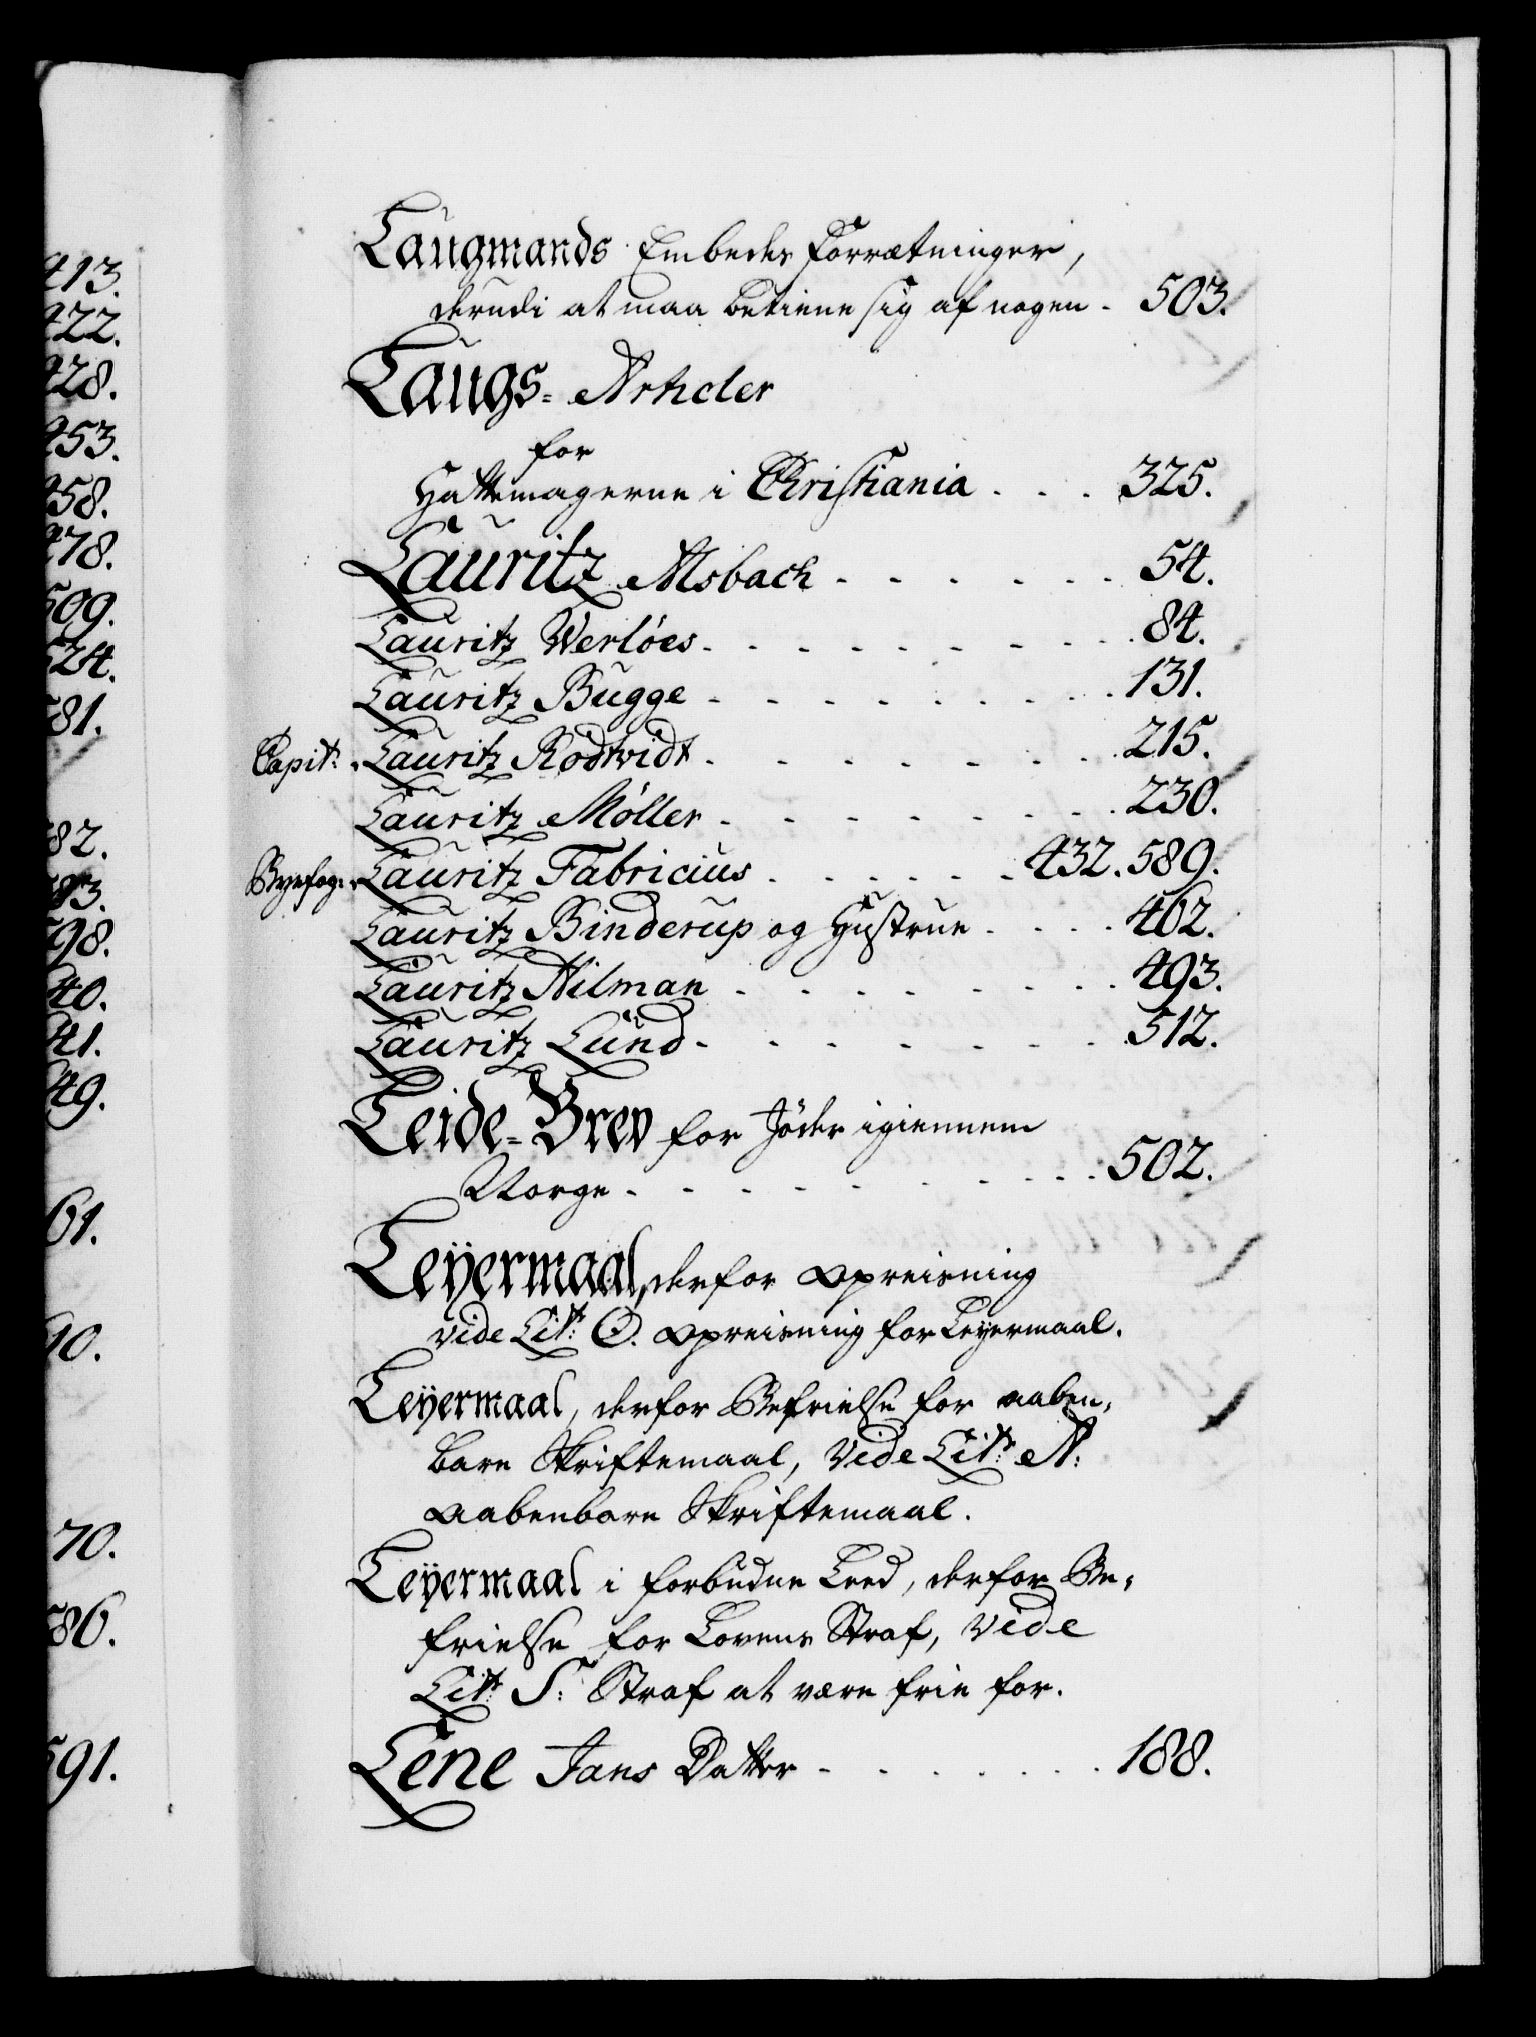 413.
422.
428.
453.
458.
478.
509.
524.
581.
82.
83.
598.
40.
41.
49.
61.
90.
70.
586.
591.
Laugmands Embedes Forrætninger,
derudi at maa betiene sig af nogen - 503.
Laugs- Articler
for
Hattemagerne i Christiania . . . 325.
Lauritz Alsbach - - - - - - 54.
Lauritz Werløes - - - - - - - - 84.
Lauritz Bugge - - - - - - - - 131.
Capit: Lauritz Rodtvidt - - - - - - - 215.
Lauritz Møller - - - - - - - - 230.
Byefog: Lauritz Fabricius - - - - - 432. 589.
Lauritz Binderup og Hustrue - - - - 462.
Lauritz Nilman - - - - - - - - 493.
Lauritz Lund - - - - - - - - 512.
Leide-Brev for Jøder igiennem
Norge - - - - - - - - - 502.
Leyermaal, derfor Opreisning
vide Litr: O. Opreisning for Leyermaal.
Leyermaal, derfor Befrielse for aaben-
bare Skriftemaal, Vide Litr: A:
Aabenbare Skriftemaal.
Leyermaal i forbudne Leed, derfor Be-
frielse for Lovens Straf, Vide
Litr: S: Straf at være frie for.
Lene Jans Datter - - - - - - 188.